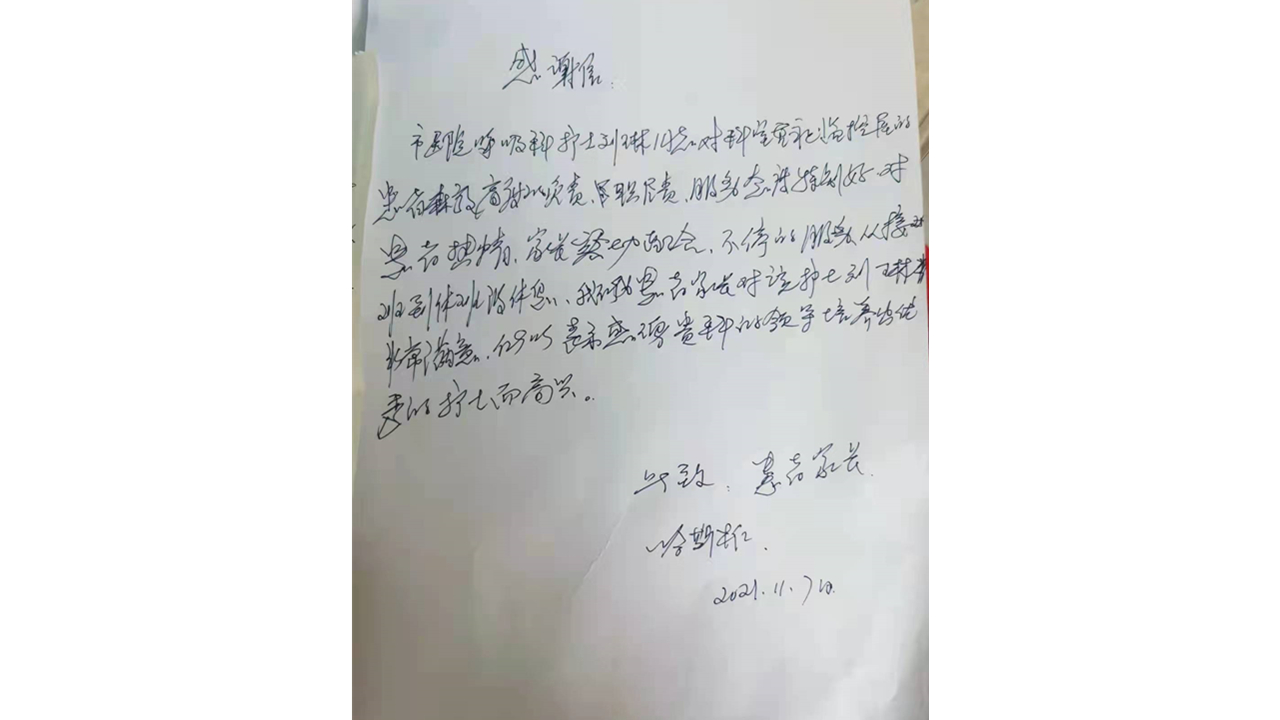 感谢信
市医院呼吸科护士刘琳同志对科室重症监控屋的
患者 高度的负责、尽职尽责、服务态度特别好、对
患者热情、家长 配合、不停的服务从接
班到休班没休息、我们 患者家长对该护士刘琳
非常满意、所以表示感谢贵科的领导培养出优
秀的护士而高兴。
此致：患者家长
哈斯
2021.11.7日